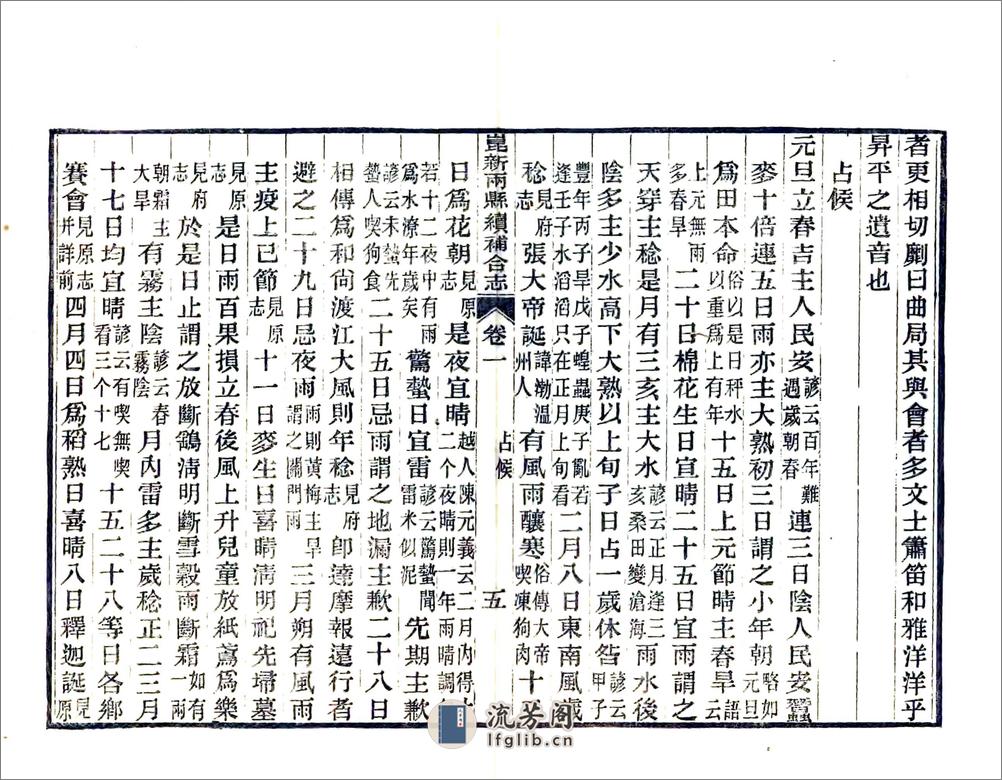 者更相切劘曰曲局其與會者多文士簫笛和雅洋洋乎
昇平之遺音也
占候
元旦立春吉主人民安諺云百年難遇歲朝春連三日陰人民安蠶
麥十倍連五日雨亦主大熟初三日謂之小年朝略如元旦
爲田本命俗以是日秤水以重爲上有年十五日上元節晴主春旱語云上元無雨
多春旱二十日棉花生日宜晴二十五日宜雨謂之
天穿主稔是月有三亥主大水諺云正月逢三亥桑田變滄海雨水後
陰多主少水高下大熟以上旬子日占一歲休咎諺云甲子
豐年丙子旱戊子蝗蟲庚子亂若逢壬子水滔滔只在正月上旬看二月八日東南風歲
稔見府志張大帝誕諱渤溫州人有風雨釀寒俗傳大帝喫凍狗肉十
崑新兩縣續補合志 卷一 占候 五
日爲花朝見原志是夜宜晴越人陳元義云二月內得十二个夜晴則一年雨晴調
若十二夜中有雨爲水潦年歲矣驚蟄日宜雷諺云驚蟄聞雷米似泥先期主歉
諺云未蟄先蟄人喫狗食二十五日忌雨謂之地漏主歉二十八日
相傳爲和尙渡江大風則年稔見府志卽達摩報遠行者
避之二十九日忌夜雨雨則黃梅主旱謂之關門雨三月朔有風雨
主疫上巳節見原志十一日麥生日喜晴淸明祀先埽墓
見原志是日雨百果損立春後風上升兒童放紙鳶爲樂
見府志於是日止謂之放斷鷂淸明斷雪穀雨斷霜如有一兩
朝霜主大旱有霧主陰諺云春霧陰月內雷多主歲稔正二三月
十七日均宜晴諺云有喫無喫看三个十七十五二十八等日各鄕
賽會見原志幷詳前四月四日爲稻熟日喜晴八日釋迦誕見原
流芳阁
lfglib.cn